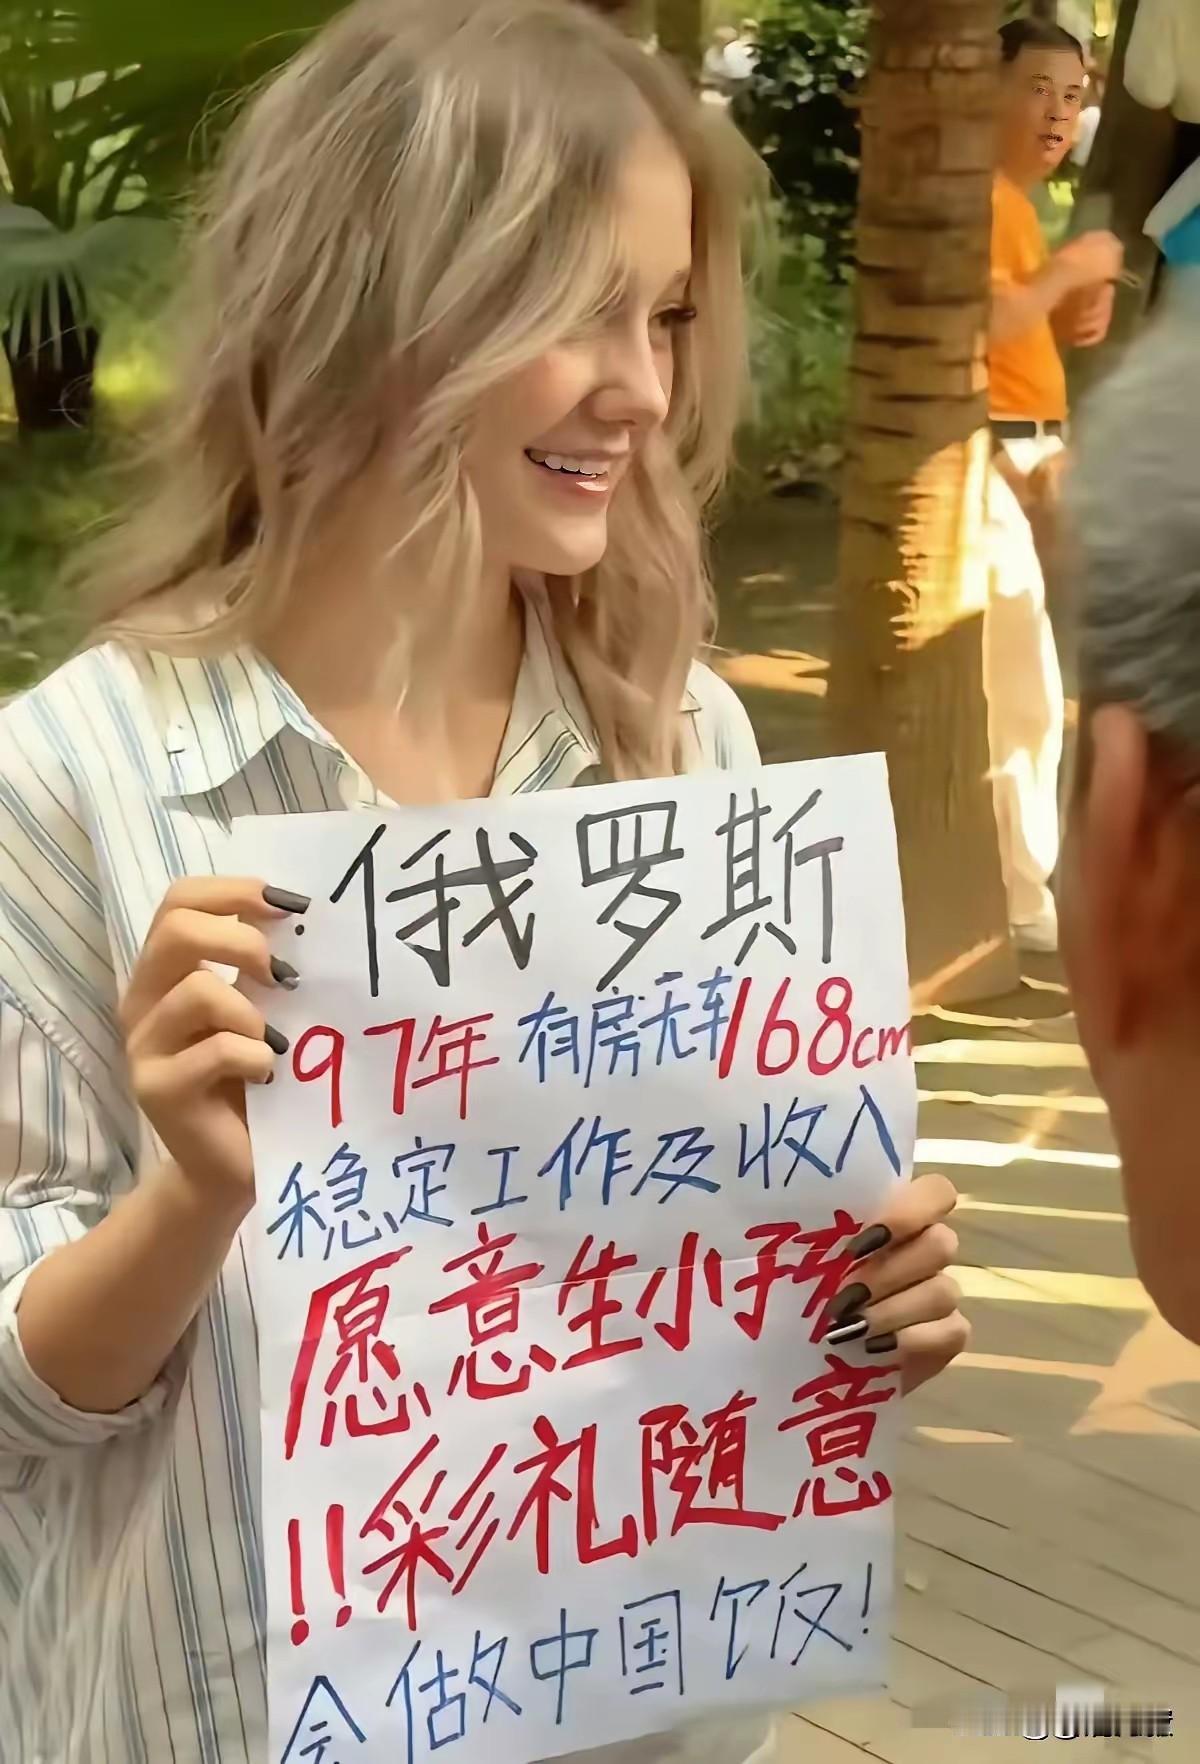 俄罗斯
97年 有房无车 168cm
稳定工作及收入
愿意生小孩
!!彩礼随意
会做中国饭!